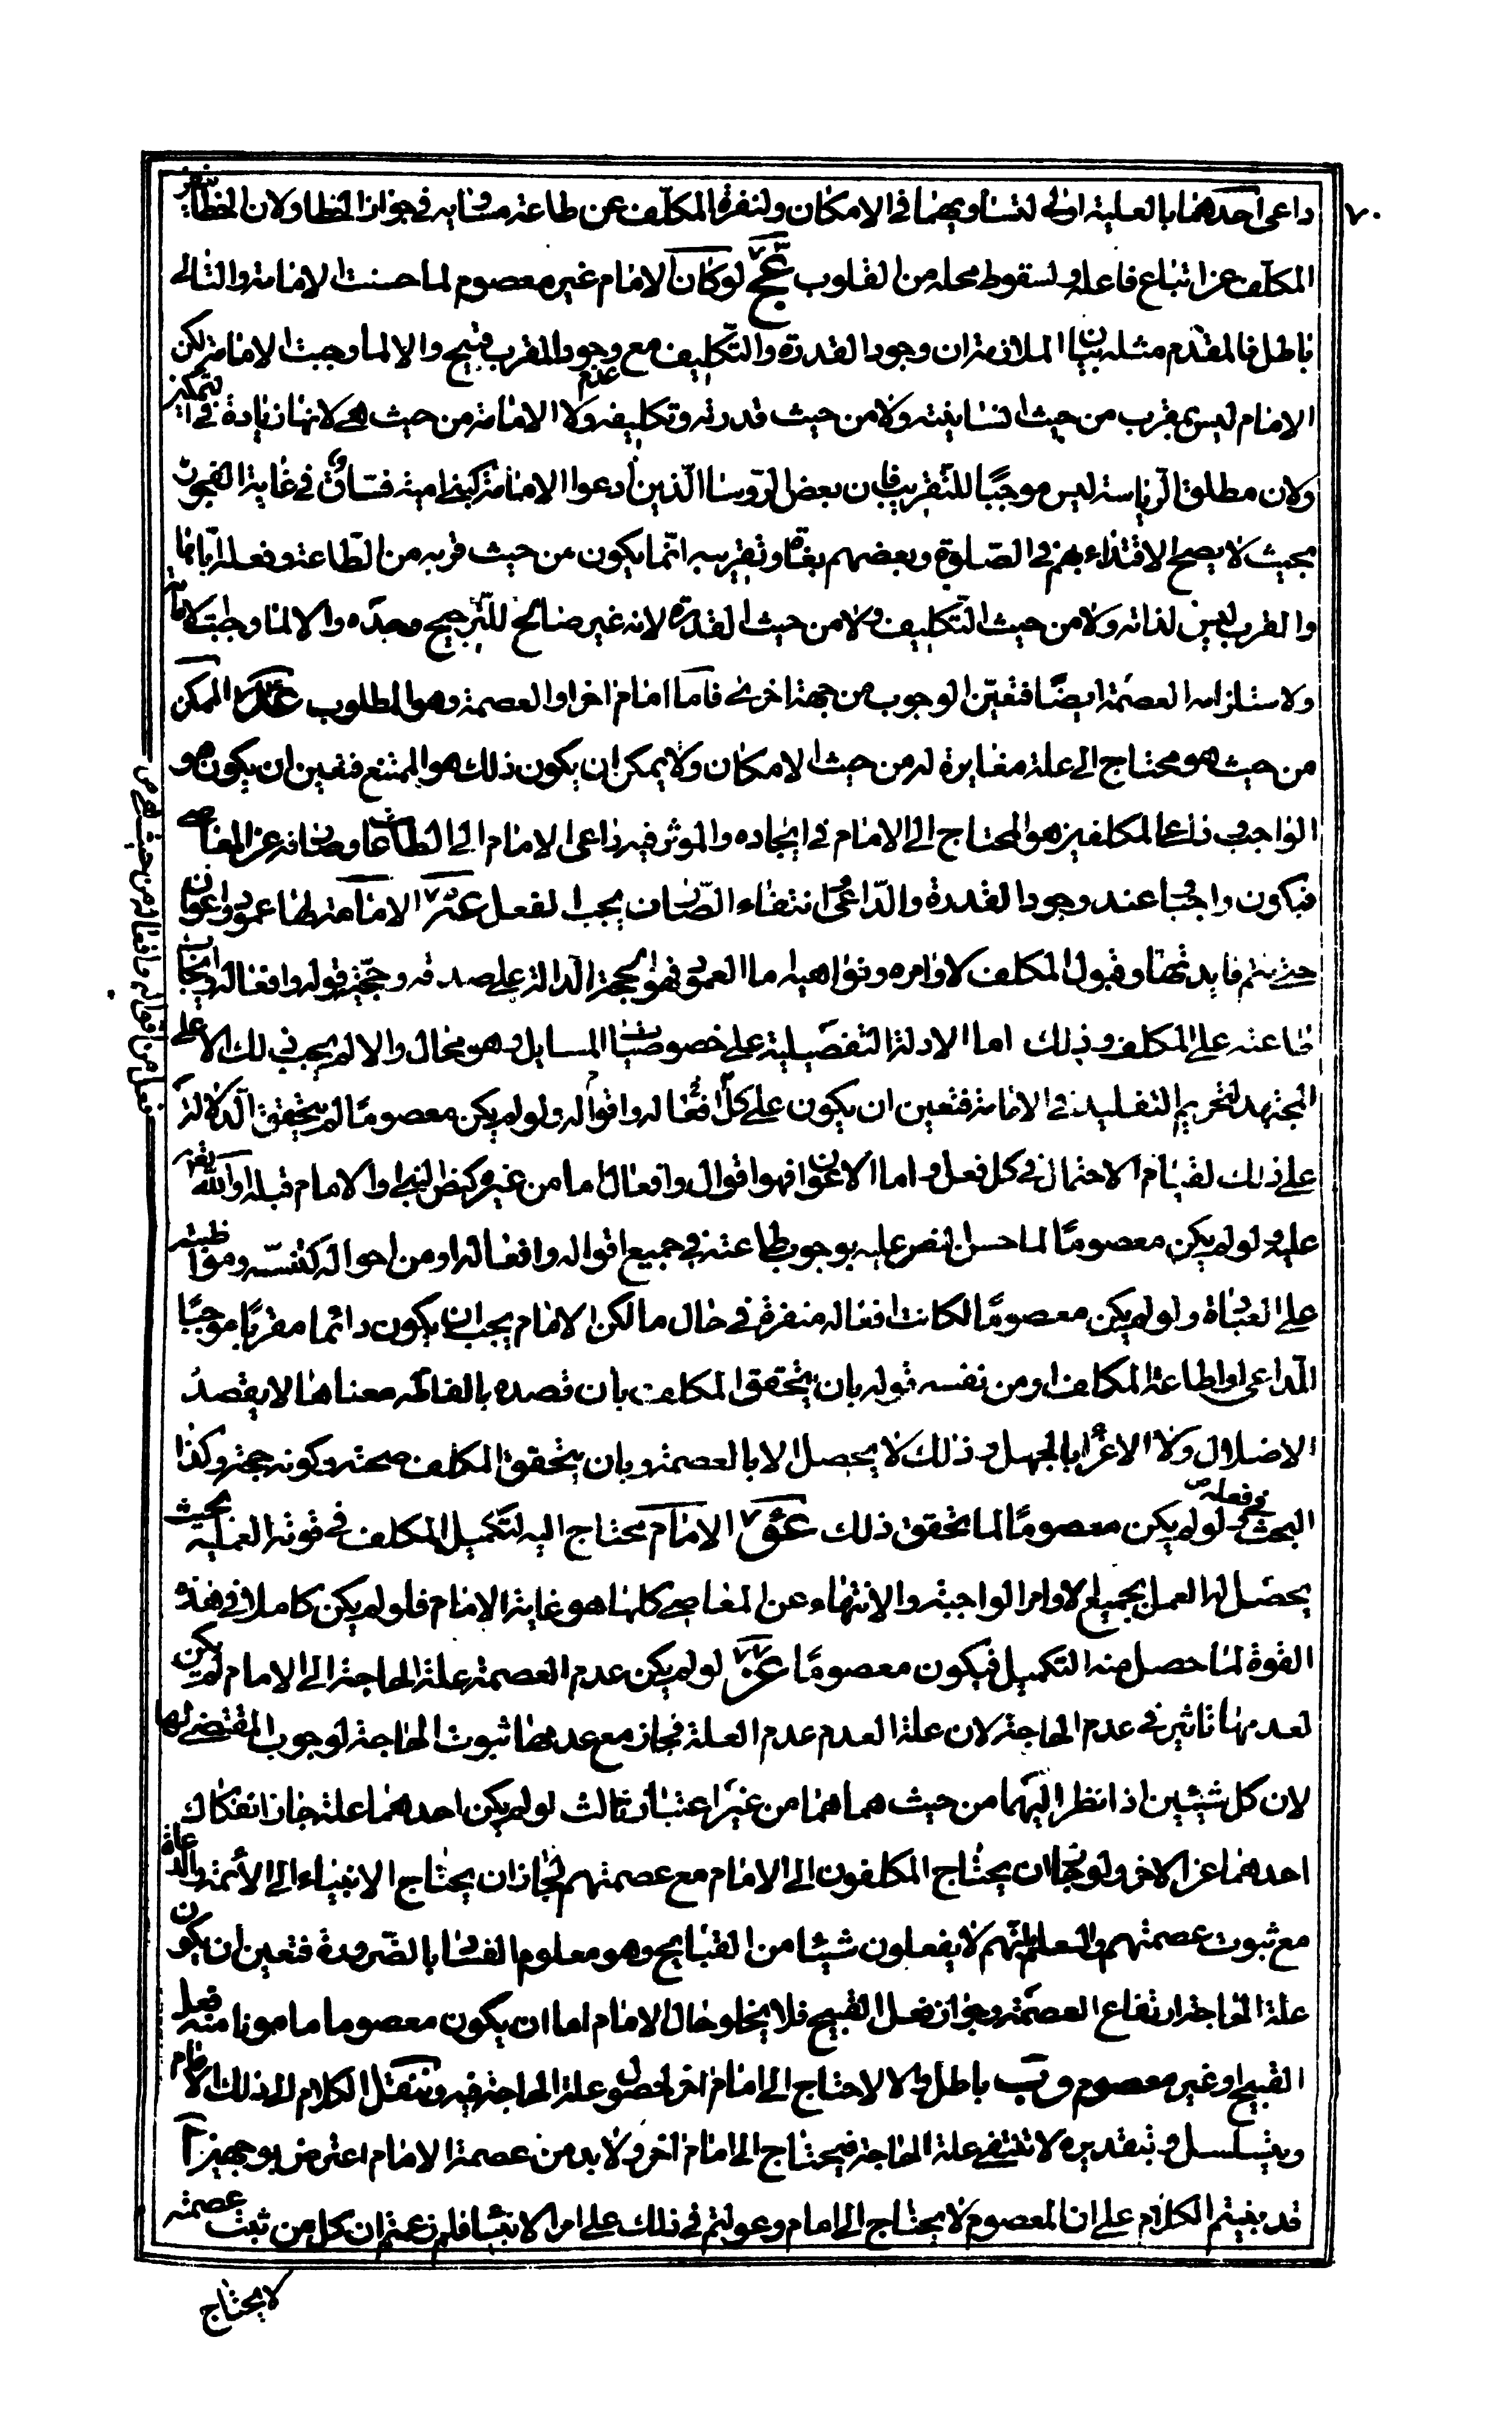 ٧٠
داعى احدهما بالعلية اولى لتساويهما فى الامكان ولنفرة المكلف عن طاعة مساويه فى جواز الخطا ولان الخطا ينفر
المكلف عن اتباع فاعله ولسقوط محله من القلوب عج لو كان الامام غير معصوم لما حسنت الامامة والتالى
باطل فالمقدم مثله بيان الملازمة ان وجود القدرة والتكليف مع عدم وجود المقرب قبيح والا لما وجبت الامامة لكن
الامام ليس بمقرب من حيث انسانيته ولا من حيث قدرته وتكليفه ولا الامامة من حيث هى لانها زيادة فى التمكين
ولان مطلق الرياسة ليس موجبا للتقريب فان بعض الروسا الذين ادعوا الامامة كبنى امية فساق فى غاية الفجور
بحيث لا يصح الاقتداء بهم فى الصلوة وبعضهم بغاة وتقريبه انما يكون من حيث قربه من الطاعة وفعله اياها
والقرب ليس لذاته ولا من حيث التكليف ولا من حيث القدرة لانه غير صالح للترجيح وحده والا لما وجبت الامامة
ولاستلزامه العصمة ايضا فتعين الوجوب من جهة اخرى فاما امام اخر او العصمة وهو المطلوب الممكن
من حيث هو محتاج الى علة مغايرة له من حيث الامكان ولا يمكن ان يكون ذلك هو الممتنع فتعين ان يكون هو
الواجب وداعى المكلفين هو المحتاج الى الامام فى ايجاده والموثر فيه داعى الامام الى الطاعات وصانه عن المعاصى
فيكون واجبا عند وجود القدرة والداعى انتفاء الصارف يجب الفعل عو الامامة لها عمود واعوان
حتى يتم فايدتها وقبول المكلف لاوامره ونواهيه اما العمود فهو الحجة الدالة على صدقه وحجية قوله وافعاله وايجاب
طاعته على المكلف وذلك اما الادلة التفصيلية على خصوصيات المسايل وهو محال والا لم يجب ذلك الا على
المجتهد لتحريم التقليد فى الامامة فتعين ان يكون على كل افعاله واقواله ولو لم يكن معصوما لم يتحقق الدلالة
على ذلك لقيام الاحتمال فى كل فعل واما الاعوان فهو اقوال وافعال اما من غيره كنص النبى والامام قبله او الله تعالى
عليه ولو لم يكن معصوما لما حسن النص عليه بوجوب طاعته فى جميع اقواله وافعاله او من احواله كنفسه ومواظبته
على العبادة ولو لم يكن معصوما لكانت افعاله منفرة فى حال ما لكن الامام يجب ان يكون دائما مقربا موجبا
لداعى اطاعة المكلف او من نفسه قوله بان يتحقق المكلف بان قصده بالفاظه معناها لا يقصد
الاضلال ولا الاغراء بالجهل وذلك لا يحصل الا بالعصمة وبان يتحقق المكلف صحته وكونه حجة وكذا
البحث فى فعله ولو لم يكن معصوما لما تحقق ذلك عو الامام يحتاج اليه لتكميل المكلف فى قوته العملية بحيث
يحصل لها العمل بجميع الاوامر الواجبة والانتهاء عن المعاصى كلها هو غاية الامام فلو لم يكن كاملا فى هذه
القوة لما حصل منه التكميل فيكون معصوما عز لو لم يكن عدم العصمة علة الحاجة الى الامام لم يكن
لعدمها تاثير فى عدم الحاجة لان علة العدم عدم العلة فجاز مع عدمها ثبوت الحاجة لوجوب المقتضى لها
لان كل شيئين اذا نظر اليهما من حيث هما هما من غير اعتبار ثالث لو لم يكن احدهما علة جاز انفكاك
احدهما عن الاخر ولو جاز ان يحتاج المكلفون الى الامام مع عصمتهم لجاز ان يحتاج الانبياء الى الائمة والدعاة
مع ثبوت عصمتهم والعلم بانهم لا يفعلون شيئا من القبايح وهو معلوم الفساد بالضرورة فتعين ان يكون
علة الحاجة ارتفاع العصمة وجواز فعل القبيح فلا يخلو حال الامام اما ان يكون معصوما مامونا منه فعل
القبيح او غير معصوم و ب باطل والا لاحتاج الى امام اخر لحصول علة الحاجة فيه وننقل الكلام الى ذلك الامام
ويتسلسل وبتقديره لا تنتفى علة الحاجة فيحتاج الى امام اخر ولا بد من عصمة الامام اعترض بوجهين آ
قد بنيتم الكلام على ان المعصوم لا يحتاج الى امام وعولتم فى ذلك على امر الانبياء فلم زعمتم ان كل من ثبتت عصمته
لا يحتاج